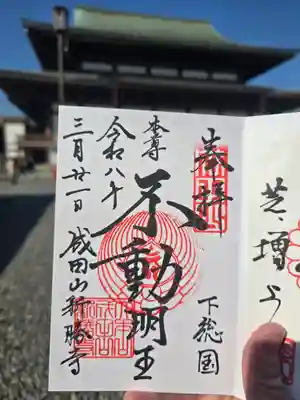 奉拝
下総国
本尊
不動明王
令和八年
三月廿一日
成田山新勝寺
芝増上